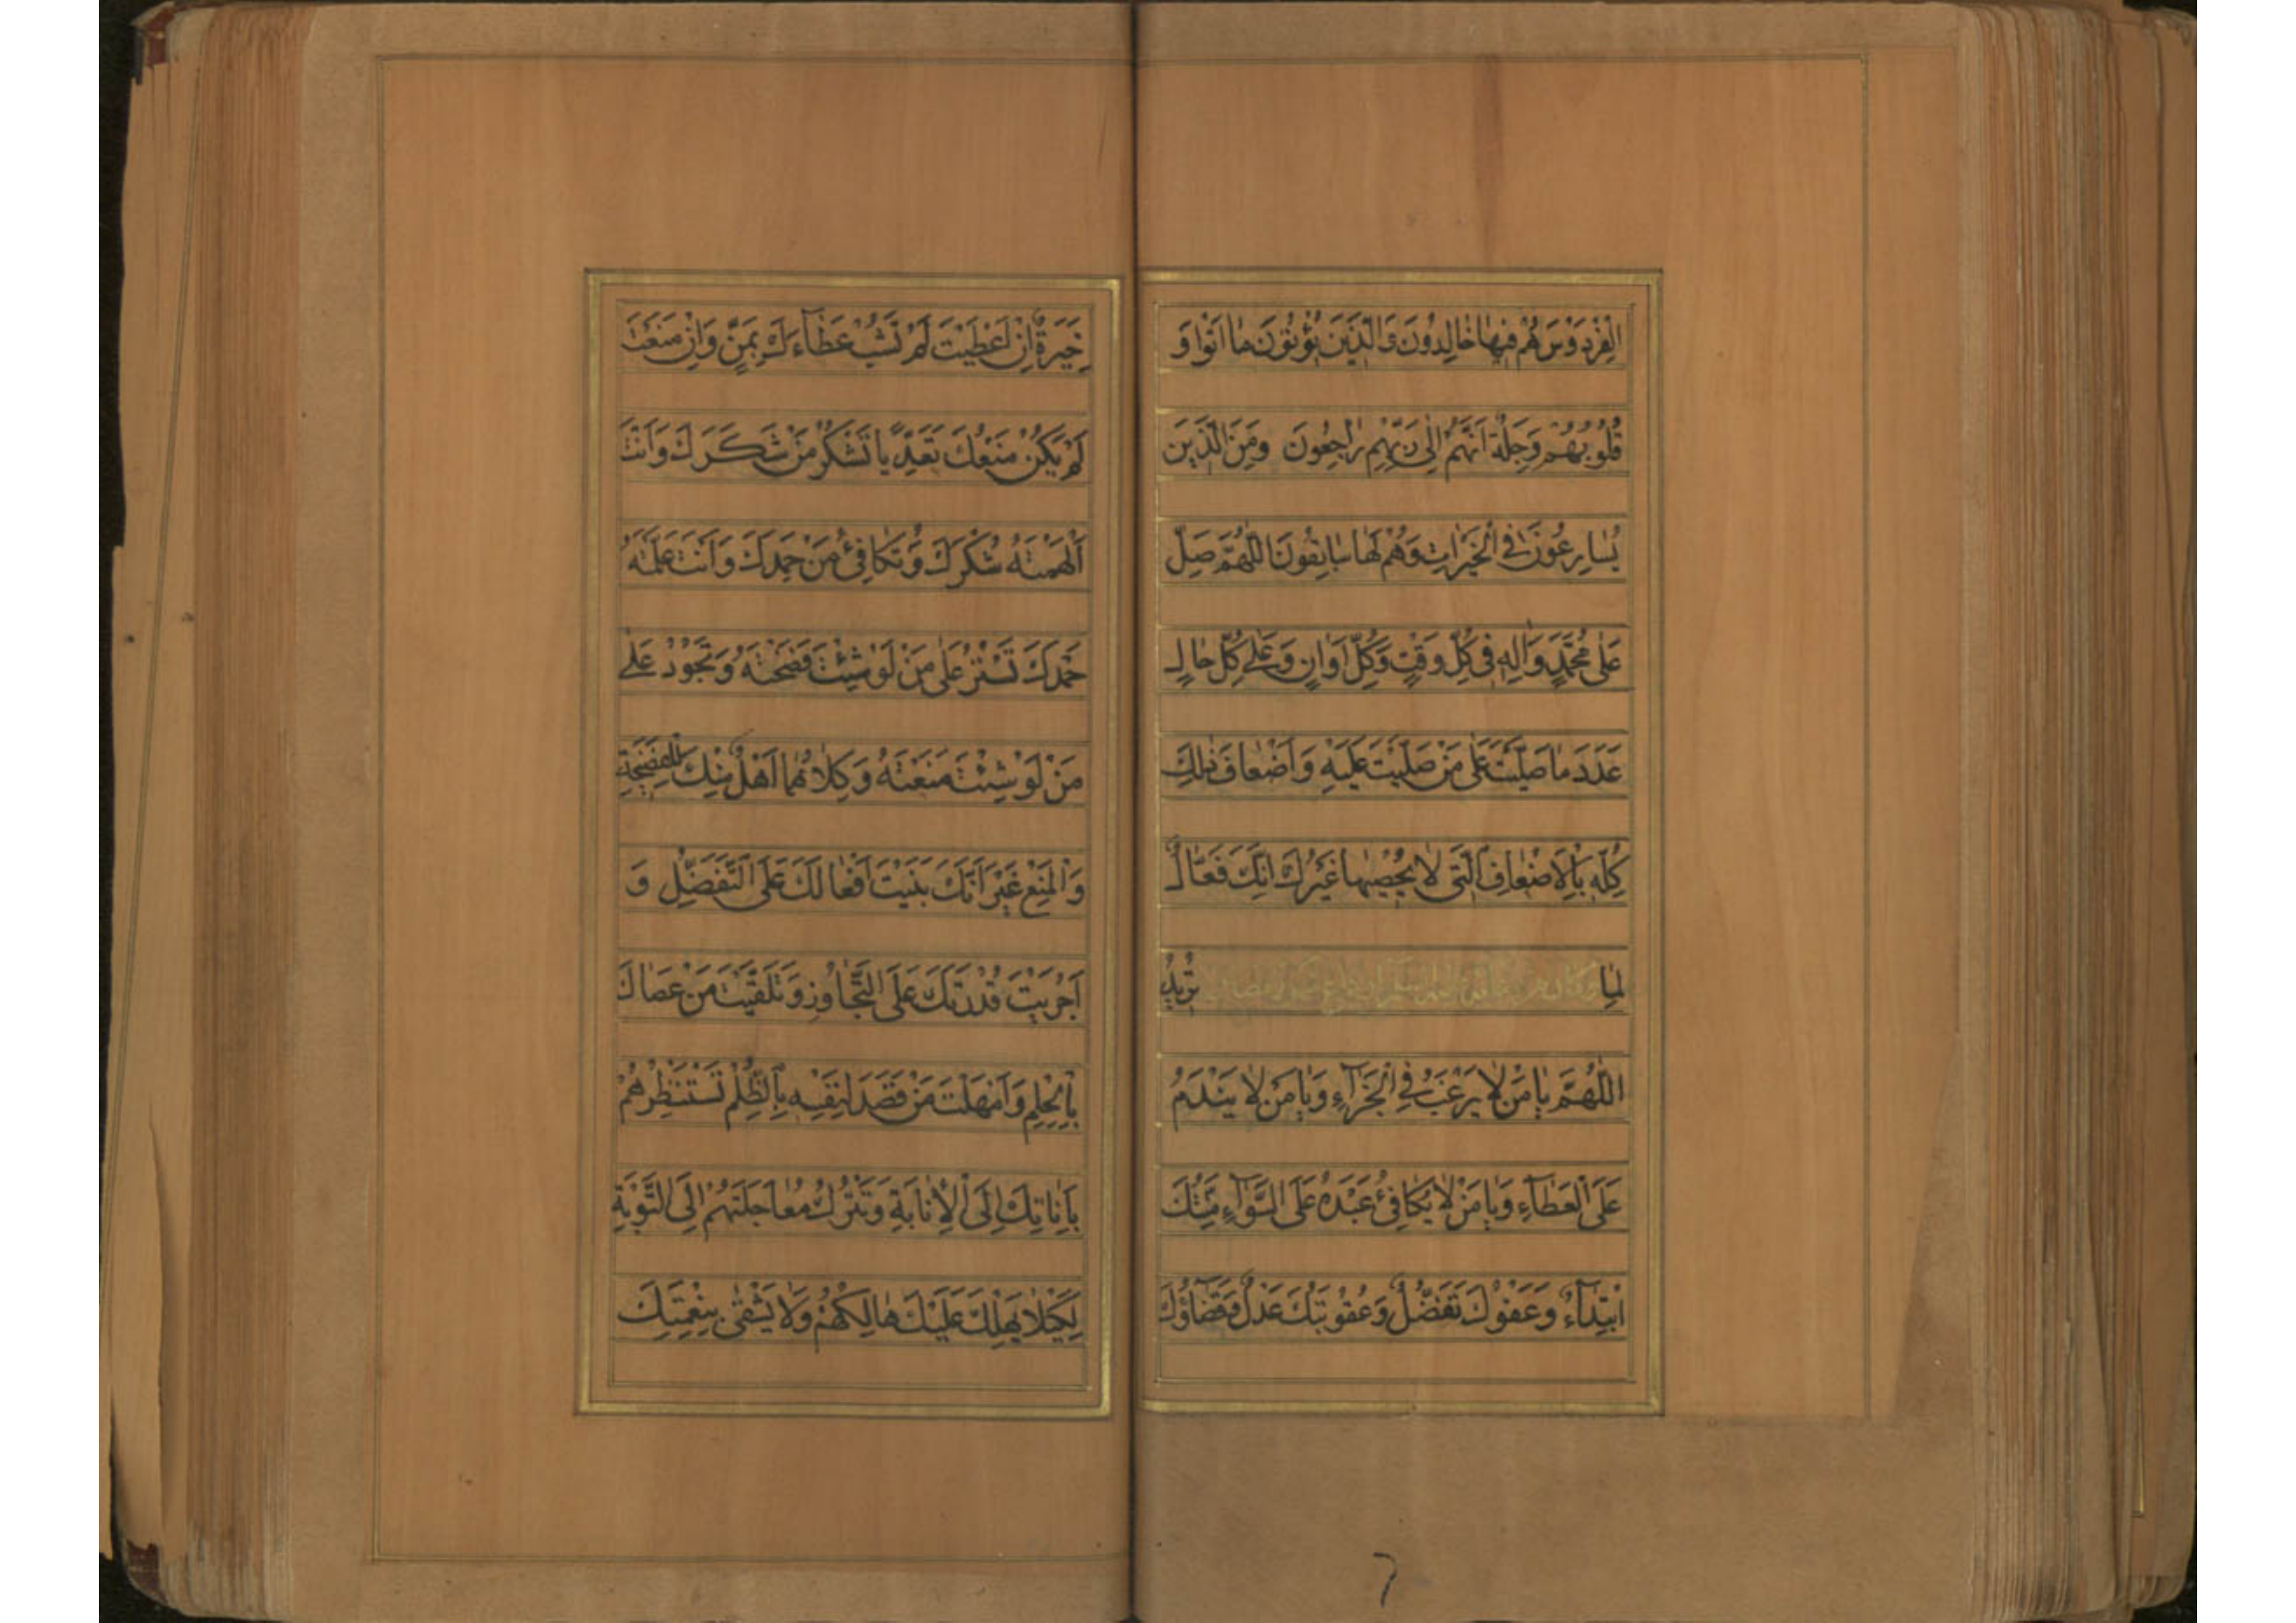 الْفِرْدَوْسَ هُمْ فِيهَا خَالِدُونَ وَالَّذِينَ يُؤْتُونَ مَا اٰتَوْا وَ
قُلُوبُهُمْ وَجِلَةٌ اَنَّهُمْ اِلٰى رَبِّهِمْ رَاجِعُونَ وَمِنَ الَّذِينَ
يُسَارِعُونَ فِي الْخَيْرَاتِ وَهُمْ لَهَا سَابِقُونَ اَللّٰهُمَّ صَلِّ
عَلٰى مُحَمَّدٍ وَاٰلِهِ فِي كُلِّ وَقْتٍ وَكُلِّ اَوَانٍ وَعَلٰى كُلِّ حَالٍ
عَدَدَ مَا صَلَّيْتَ عَلٰى مَنْ صَلَّيْتَ عَلَيْهِ وَاَضْعَافَ ذٰلِكَ
كُلِّهِ بِالْاَضْعَافِ الَّتِي لَا يُحْصِيهَا غَيْرُكَ اِنَّكَ فَعَّالٌ
لِمَا تُرِيدُ
اَللّٰهُمَّ يَا مَنْ لَا يَرْغَبُ فِي الْجَزَاءِ وَيَا مَنْ لَا يَنْدَمُ
عَلَى الْعَطَاءِ وَيَا مَنْ لَا يُكَافِئُ عَبْدَهُ عَلَى السَّوَاءِ مِنَّتُكَ
ابْتِدَاءٌ وَعَفْوُكَ تَفَضُّلٌ وَعُقُوبَتُكَ عَدْلٌ وَقَضَاؤُكَ
خِيَرَةٌ اِنْ اَعْطَيْتَ لَمْ تَشُبْ عَطَاءَكَ بِمَنٍّ وَاِنْ مَنَعْتَ
لَمْ يَكُنْ مَنْعُكَ تَعَدِّيًا تَشْكُرُ مَنْ شَكَرَكَ وَاَنْتَ
اَلْهَمْتَهُ شُكْرَكَ وَتُكَافِئُ مَنْ حَمِدَكَ وَاَنْتَ عَلَّمْتَهُ
حَمْدَكَ تَسْتُرُ عَلٰى مَنْ لَوْ شِئْتَ فَضَحْتَهُ وَتَجُودُ عَلٰى
مَنْ لَوْ شِئْتَ مَنَعْتَهُ وَكِلَاهُمَا اَهْلٌ مِنْكَ لِلْفَضِيحَةِ
وَالْمَنْعِ غَيْرَ اَنَّكَ بَنَيْتَ اَفْعَالَكَ عَلَى التَّفَضُّلِ وَ
اَجْرَيْتَ قُدْرَتَكَ عَلَى التَّجَاوُزِ وَتَلَقَّيْتَ مَنْ عَصَاكَ
بِالْحِلْمِ وَاَمْهَلْتَ مَنْ قَصَدَ لِنَفْسِهِ بِالظُّلْمِ تَسْتَنْظِرُهُمْ
بِاَنَاتِكَ اِلَى الْاِنَابَةِ وَتَتْرُكُ مُعَاجَلَتَهُمْ اِلَى التَّوْبَةِ
لِكَيْلَا يَهْلِكَ عَلَيْكَ هَالِكُهُمْ وَلَا يَشْقٰى بِنِعْمَتِكَ